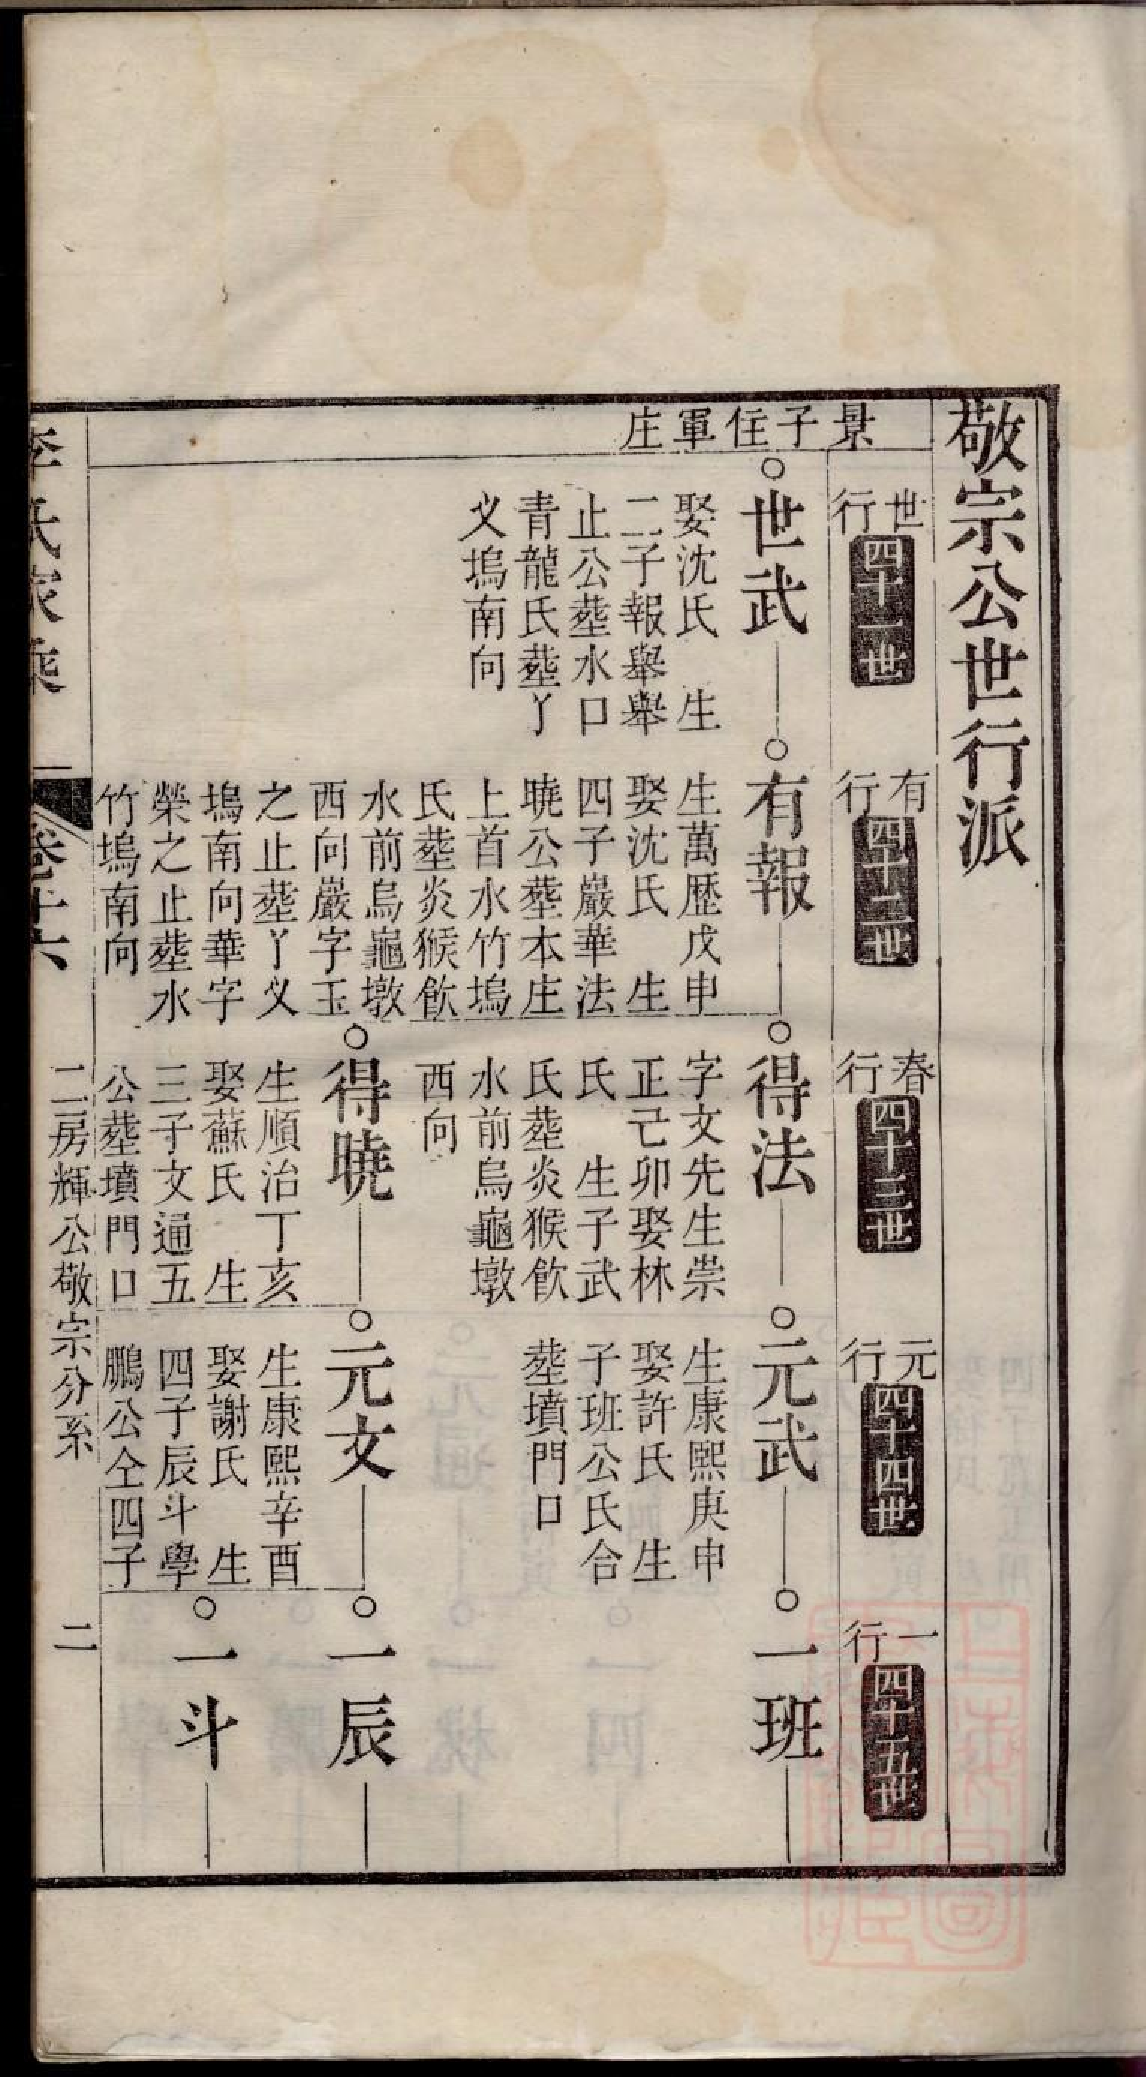 敬宗公世行派
世行
四十一世
有行
四十二世
春行
四十三世
元行
四十四世
一行
四十五世
景子住軍庄
世武
娶沈氏　生
二子報舉舉
止公塟水口
青龍氏塟丫
义塢南向
有報
生萬歷戊申
娶沈氏　生
四子巖華法
曉公塟本庄
上首水竹塢
氏塟炎猴飮
水前烏龜墩
西向巖字玉
之止塟丫义
塢南向華字
榮之止塟水
竹塢南向
得法
字文先生崇
正己卯娶林
氏　生子武
氏塟炎猴飮
水前烏龜墩
西向
元武
生康熙庚申
娶許氏　生
子班公氏合
塟墳門口
一班
得曉
生順治丁亥
娶蘇氏　生
三子文通五
公塟墳門口
元文
生康熙辛酉
娶謝氏　生
四子辰斗學
鵬公仝四子
一辰
一斗
李氏家乘
卷十六
二房輝公敬宗分系
二